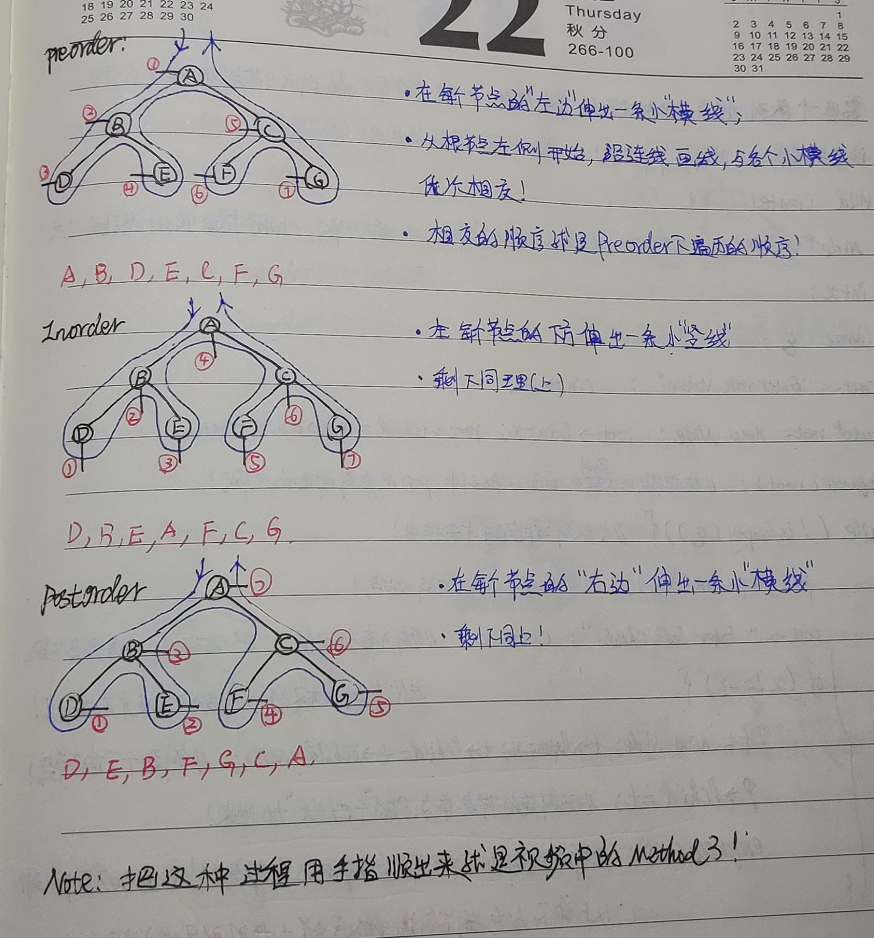 18 19 20 21 22 23 24
25 26 27 28 29 30
22
Thursday
秋分
266-100
1
2 3 4 5 6 7 8
9 10 11 12 13 14 15
16 17 18 19 20 21 22
23 24 25 26 27 28 29
30 31
preorder:
① A
② B ⑤ C
③ D ④ E ⑥ F ⑦ G
·在每个节点的"左边"伸出一条小"横线";
·从根节点左侧开始,沿连线画线,与各个小横线
依次相交!
·相交的顺序就是Preorder下遍历的顺序!
A, B, D, E, C, F, G
Inorder
A
④
B C
② ⑥
D E F G
① ③ ⑤ ⑦
·在每个节点的下方伸出一条小"竖线"
·剩下同理(上)
D, B, E, A, F, C, G.
Postorder
A ⑦
B ③ C ⑥
D ① E ② F ④ G ⑤
·在每个节点的"右边"伸出一条小"横线"
·剩下同上!
D, E, B, F, G, C, A.
Note: 把这种过程用手指顺出来就是视频中的Method 3!